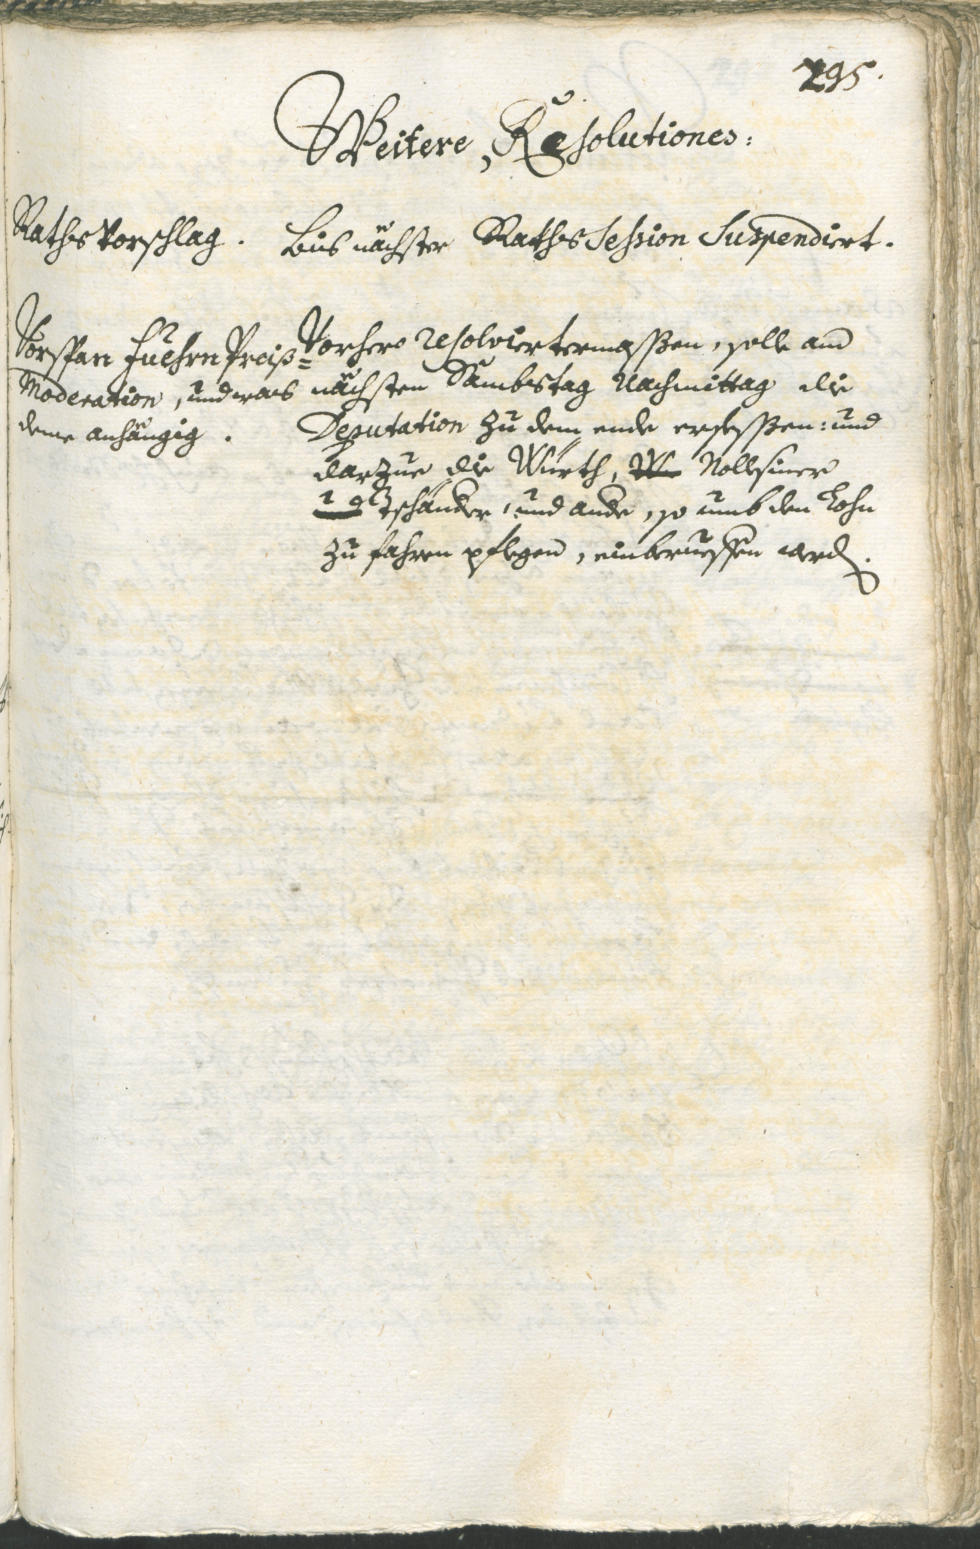 295.
Weitere Resolutiones:
Raths Vorschlag.
Bis nächster Raths Session Suspendiert.
Vorspan Fuehrn Preiß=
Moderation, und was
deme anhängig.
Vorhero resolviertermassen, solle am
nächsten Sambstag Nachmittag die
Deputation zu dem ende ersessen: und
darzue die Würth,
und ande, so umb den Lohn
zu fahren pflegen, einberueffen werd.